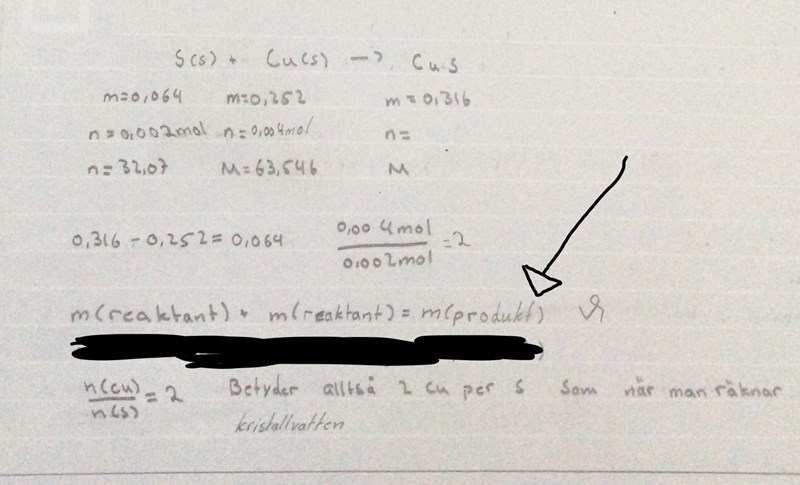 S(s) + Cu(s) → CuS
m=0,064 m=0,252 m=0,316
n=0,002mol n=0,004mol n=
n=32,07 M=63,546 M
0,316 - 0,252 = 0,064 0,004mol/0,002mol = 2
m(reaktant) + m(reaktant) = m(produkt)
n(Cu)/n(S) = 2 Betyder alltså 2 Cu per S som när man räknar
kristallvatten